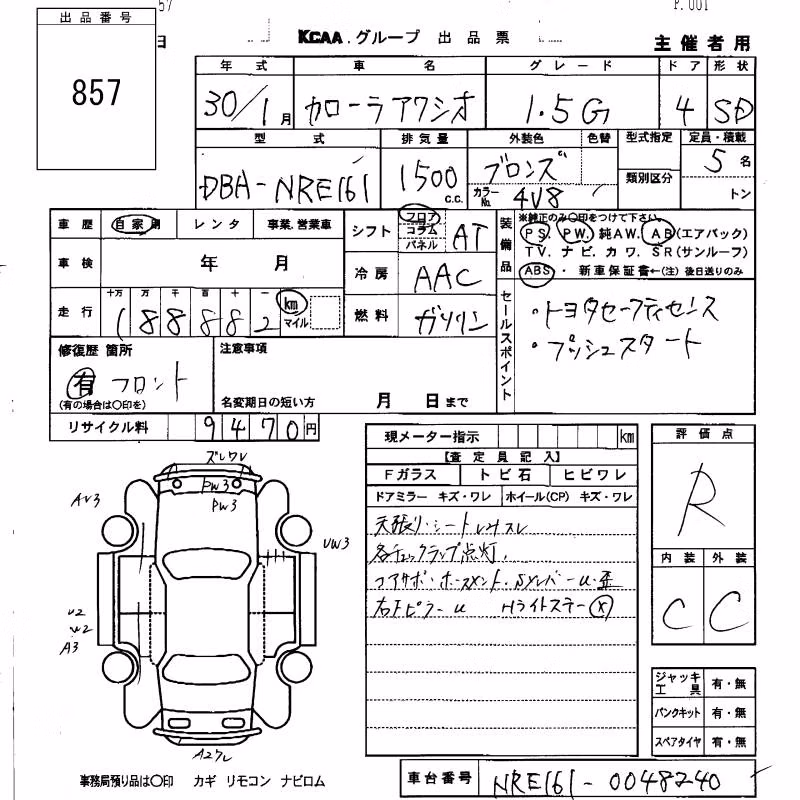 57
P.001
出品番号
857
日
KCAA.グループ 出品票
主催者用
年式 車名 グレード ドア 形状
30/1月 カローラアクシオ 1.5G 4 SD
型式 排気量 外装色 色替 型式指定 定員・積載
DBA-NRE161 1500c.c. ブロンズ 5名
カラーNo. 4V8 類別区分 トン
車歴 自家用 レンタ 事業.営業車
シフト フロア コラム パネル AT
装備品
※純正のみ○印をつけて下さい。
PS. PW. 純AW. AB(エアバック)
TV. ナビ. カワ. SR(サンルーフ)
ABS・新車保証書←(注)後日送りのみ
車検 年 月
冷房 AAC
走行 十万 万 千 百 十 一 km マイル
188882
燃料 ガソリン
セールスポイント
・トヨタセーフティセンス
・プッシュスタート
修復歴 箇所
有 フロント
(有の場合は○印を)
注意事項
名変期日の短い方 月 日まで
リサイクル料 9470円
現メーター指示 km
【査定員記入】
Fガラス トビ石 ヒビワレ
ドアミラー キズ・ワレ ホイール(CP) キズ・ワレ
天張り・シート
各チェックランプ点灯.
コアサポ・ホースメント.
右Fピラーu Hライトステー(X)
評価点
R
内装 外装
C C
ズレワレ
PW3
PW3
AV3
UW3
U2
W2
A3
A2ワレ
ジャッキ工具 有・無
パンクキット 有・無
スペアタイヤ 有・無
事務局預り品は○印 カギ リモコン ナビロム
車台番号 NRE161-0048240